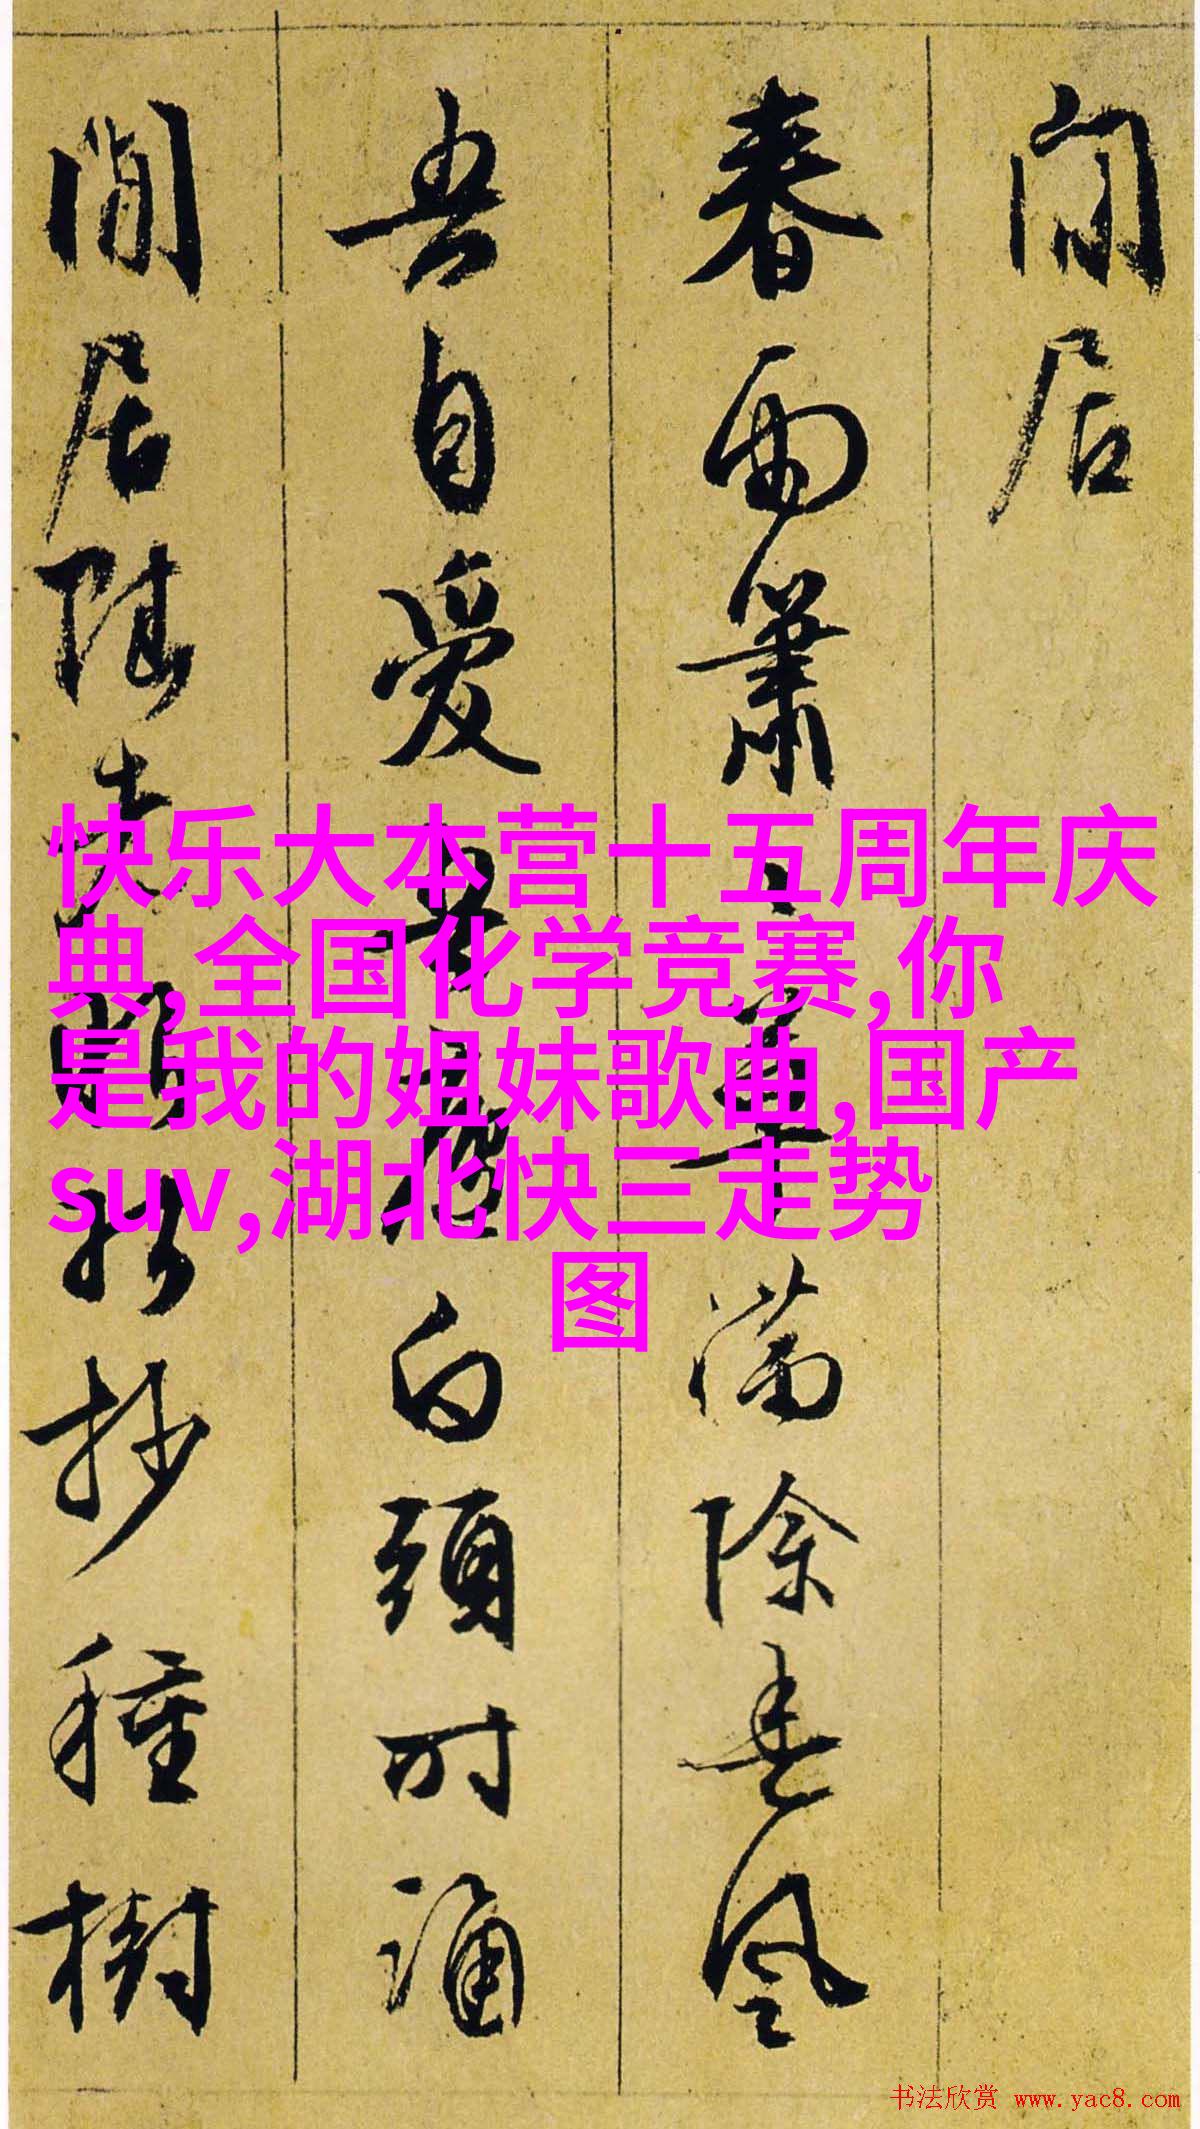 閑居
春雨蕭〻草滿除春風
吾自愛吾廬白頭時誦
閒居抄種樹
快乐大本营十五周年庆
典,全国化学竞赛,你
是我的姐妹歌曲,国产
suv,湖北快三走势
图
书法欣赏 www.yac8.com